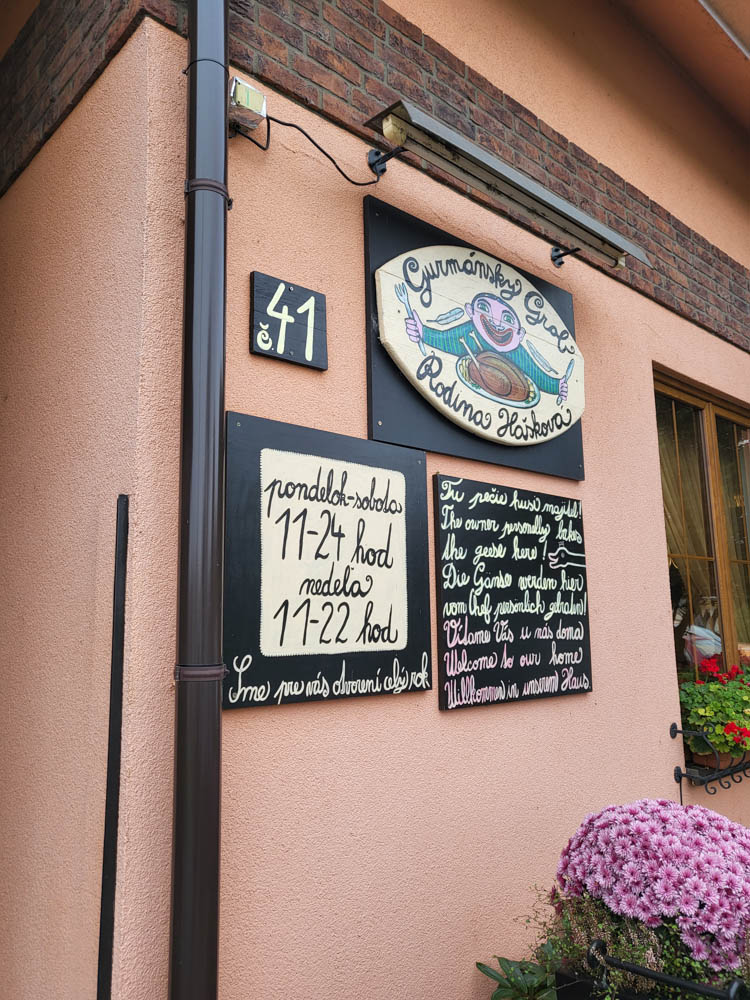 č.41
Gurmánsky Grob
Rodina Hašková
pondelok-sobota
11-24 hod
nedeľa
11-22 hod
Sme pre vás otvorení celý rok
Tu pečie husi majiteľ!
The owner personally bakes
the geese here!
Die Gänse werden hier
vom Chef persönlich gebraten!
Vítame Vás u nás doma
Welcome to our home
Willkommen in unserem Haus